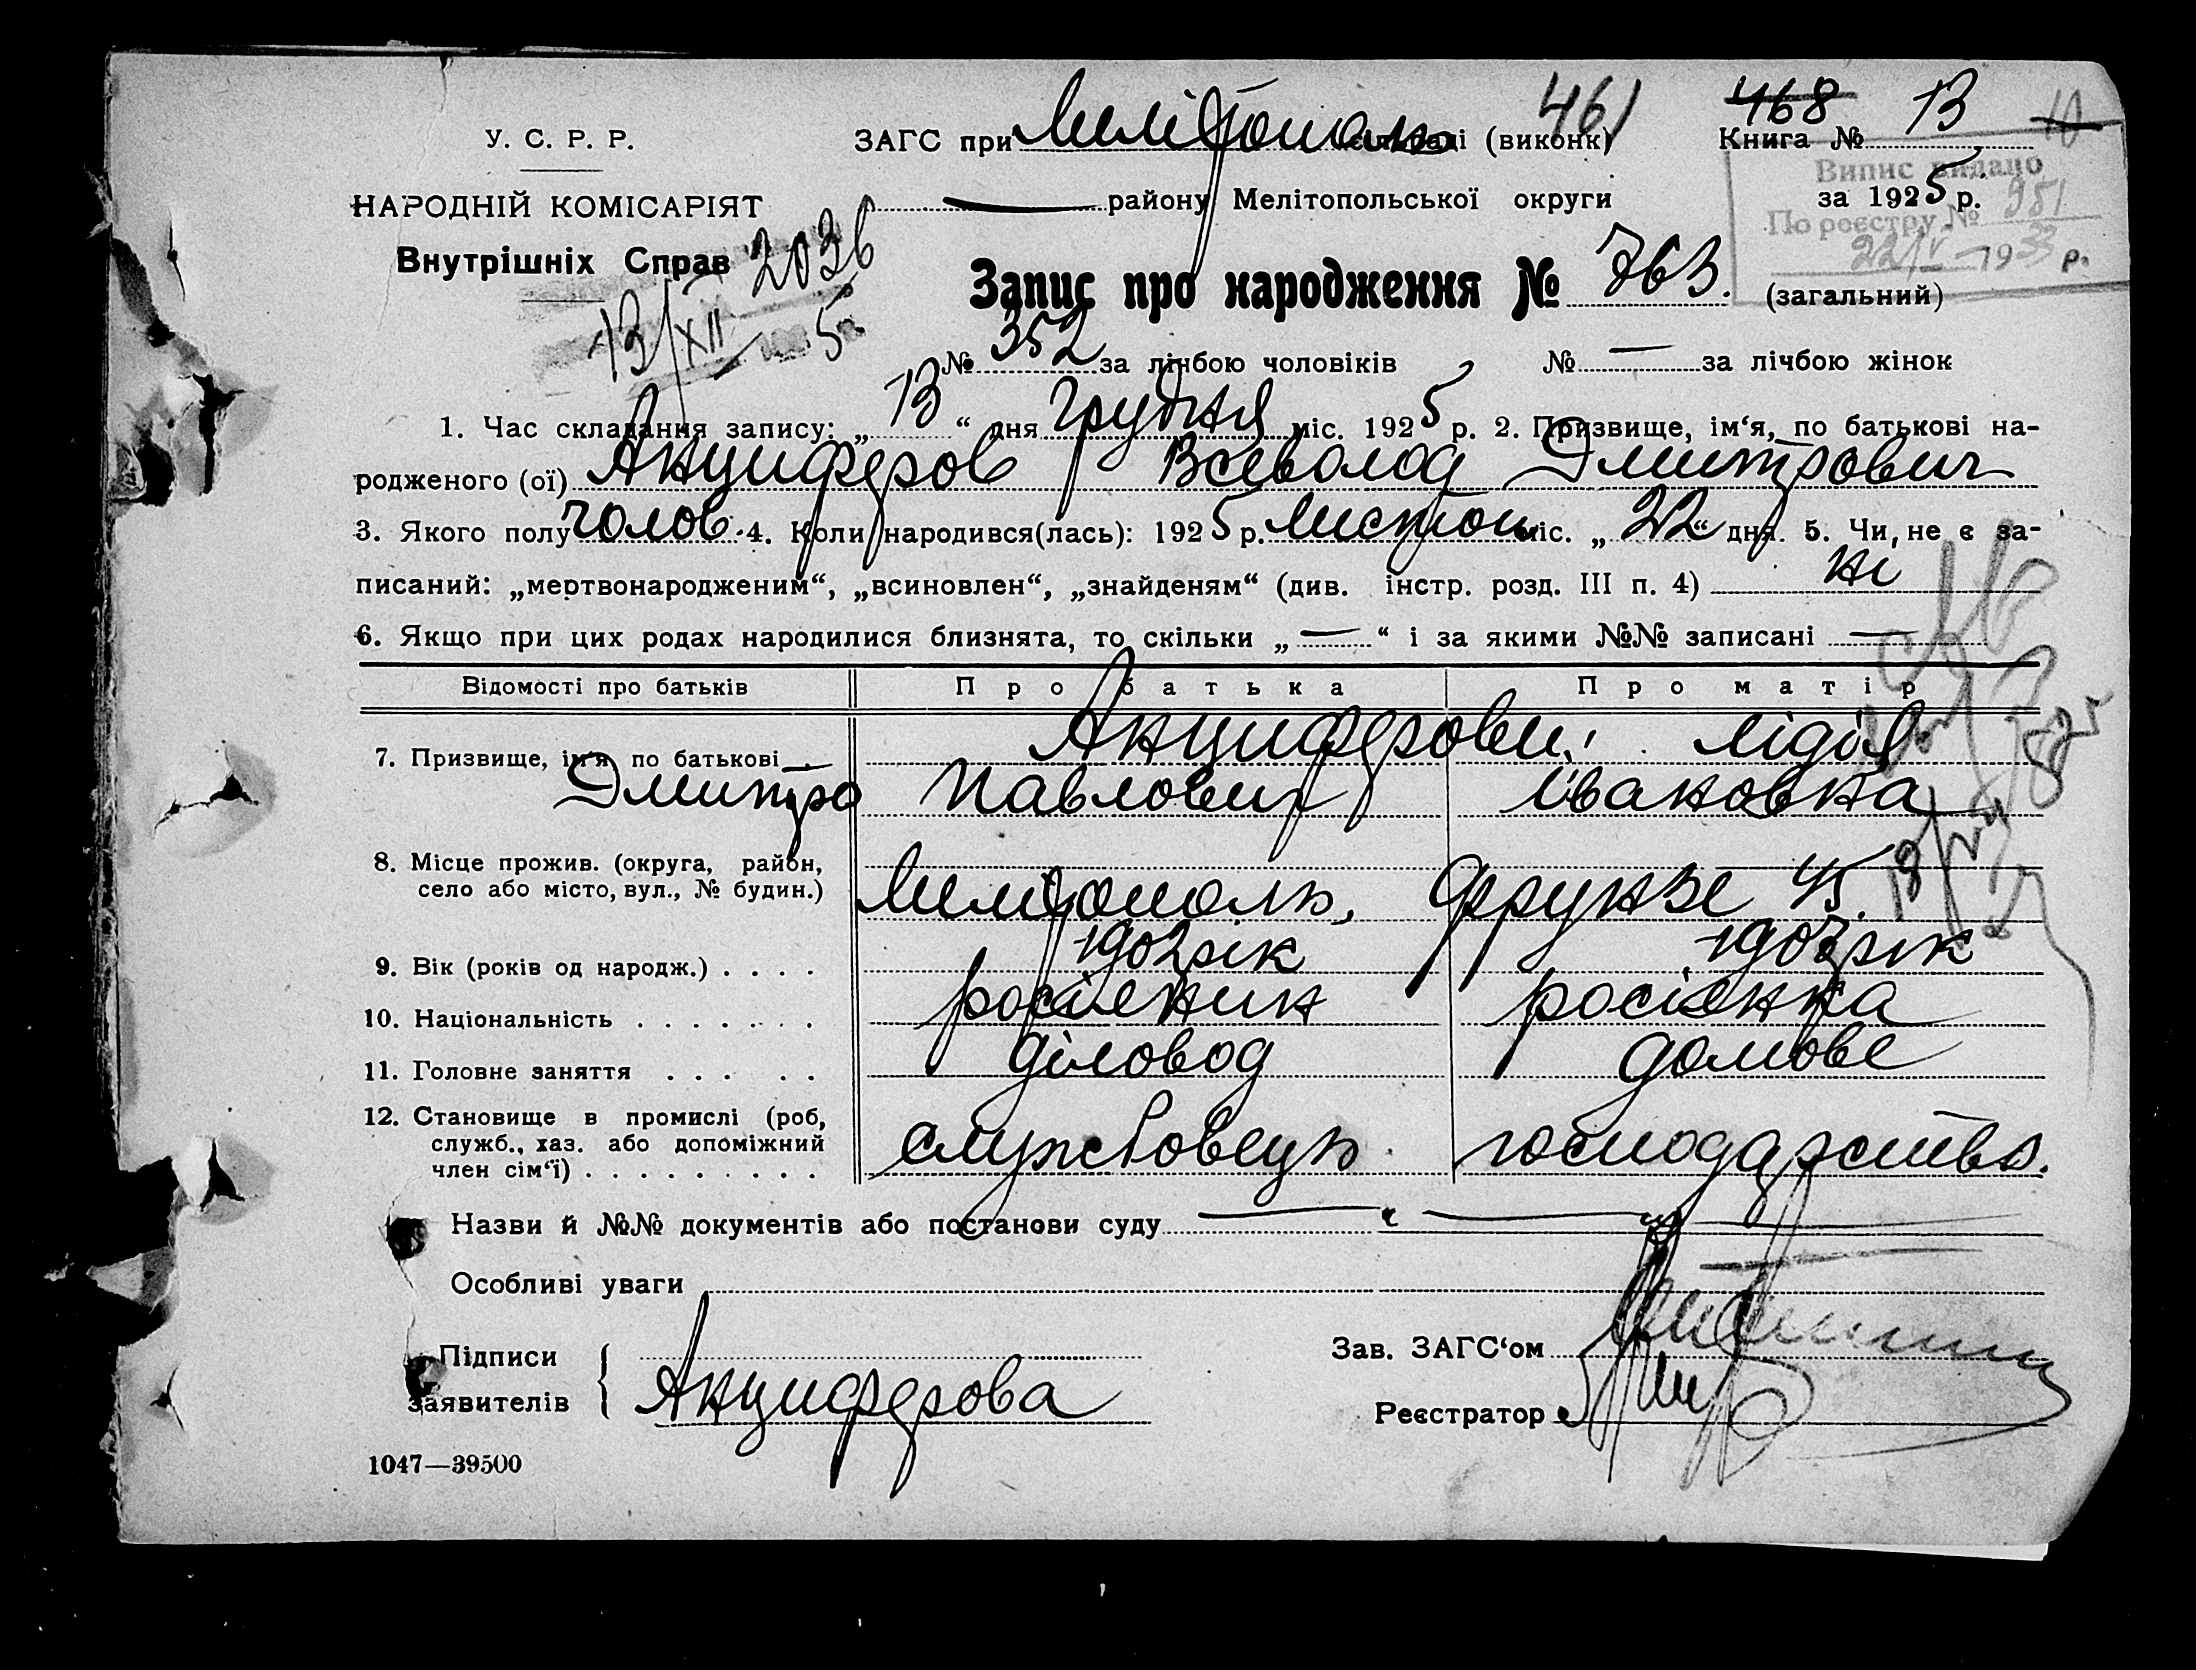 461 468 13 10
У. С. Р. Р. ЗАГС при Мелітополь сільраді (виконк) Книга №
Випис видано
НАРОДНІЙ КОМІСАРІЯТ — району Мелітопольської округи за 1925 р.
По реєстру № 951
Внутрішніх Справ 2036 22/V—1933 р.
Запис про народження № 763. (загальний)
13/XII 5
№ 352 за лічбою чоловіків № — за лічбою жінок
1. Час складання запису: „ 13 “ дня грудня міс. 1925 р. 2. Призвище, ім‘я, по батькові на-
родженого (ої) Анциферов Всеволод Дмитрович
3. Якого полу чолов. 4. Коли народився(лась): 1925 р. Листоп. міс. „ 22 “ дня. 5. Чи не є за-
писаний: „мертвонародженим“, „всиновлен“, „знайденям“ (див. інстр. розд. III п. 4) ні
6. Якщо при цих родах народилися близнята, то скільки „ — “ і за якими №№ записані —
Відомості про батьків Про батька Про матір
7. Призвище, ім‘я, по батькові . Анциферови: Лідія
Дмитро Павлович Івановна
8. Місце прожив. (округа, район,
село або місто, вул., № будин.) Мелітополь, Фрунзе 45.
9. Вік (років од народж.) . . . . 1902 рік 1903 рік
10. Національність . . . . . . . росіянин росіянка
11. Головне заняття . . . . . діловод домове
12. Становище в промислі (роб,
служб., хаз. або допоміжний
член сім‘ї) . . . . . . . . . службовець господарство.
Назви й №№ документів або постанови суду — „ —
Особливі уваги
Підписи
Зав. ЗАГС‘ом
заявителів Анциферова
Реєстратор
1047—39500